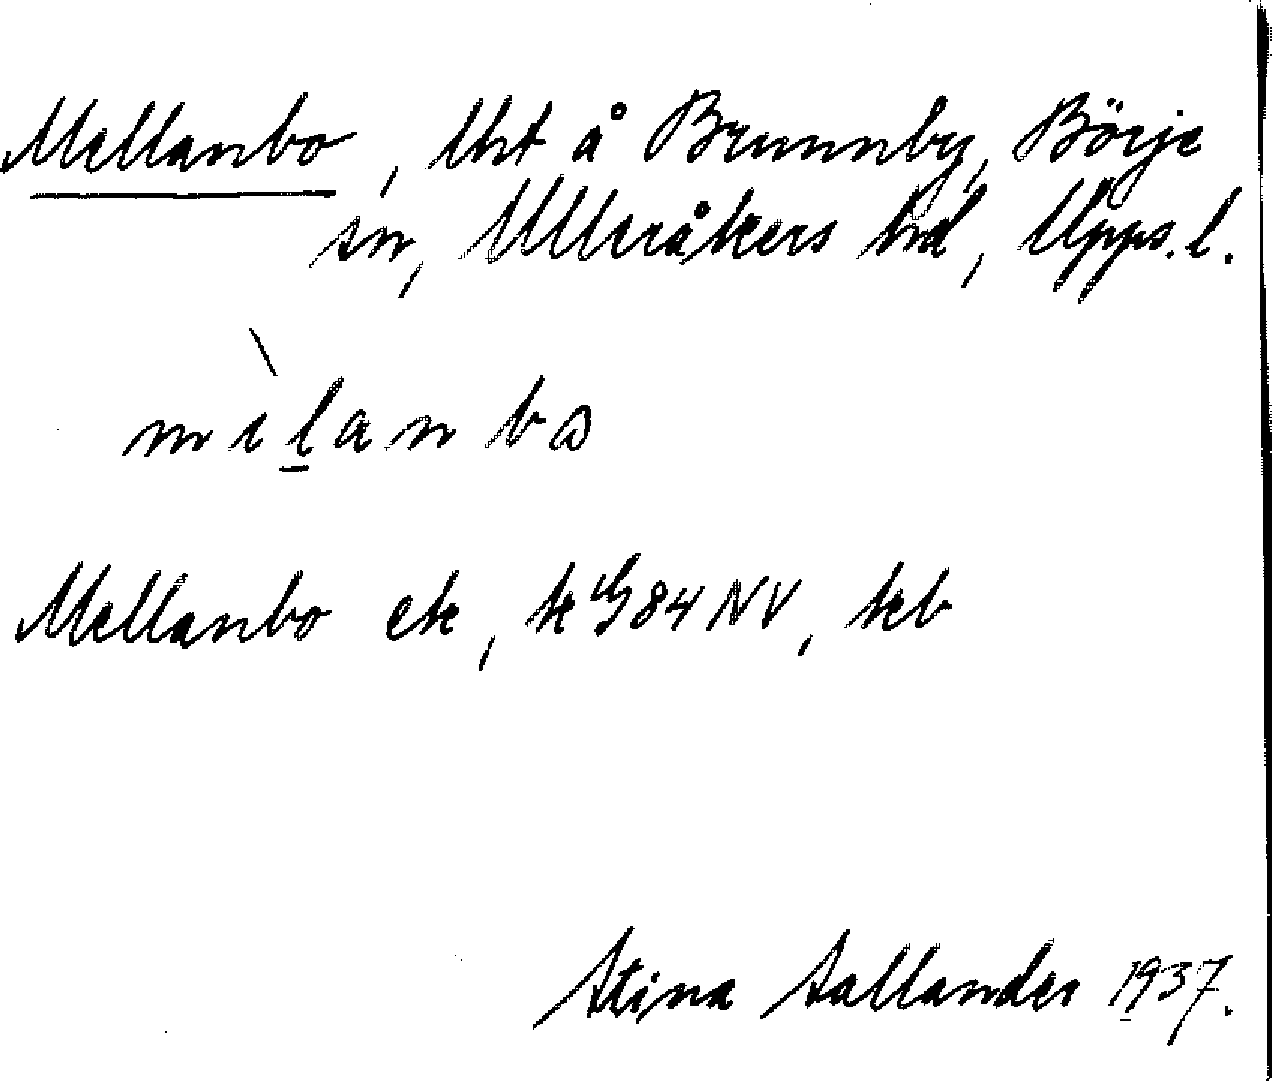 Mellanbo, lht å Brunnby, Börje
sn, Ulleråkers hrd, Upps. l.
Mellanbo ek, kbl
Stina Sallander 1937.